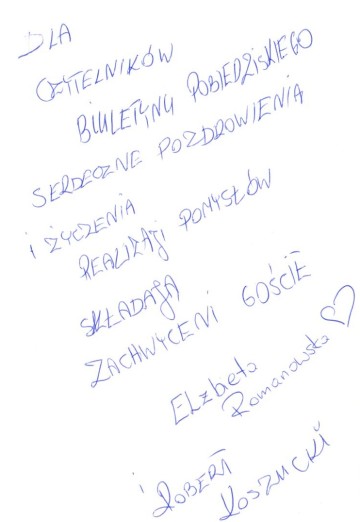 DLA
CZYTELNIKÓW
BIULETYNU POBIEDZISKIEGO
SERDECZNE POZDROWIENIA
i ŻYCZENIA
REALIZACJI POMYSŁÓW
SKŁADAJĄ
ZACHWYCENI GOŚCIE
Elżbieta
Romanowska
i
ROBERT
KOSZUCKI